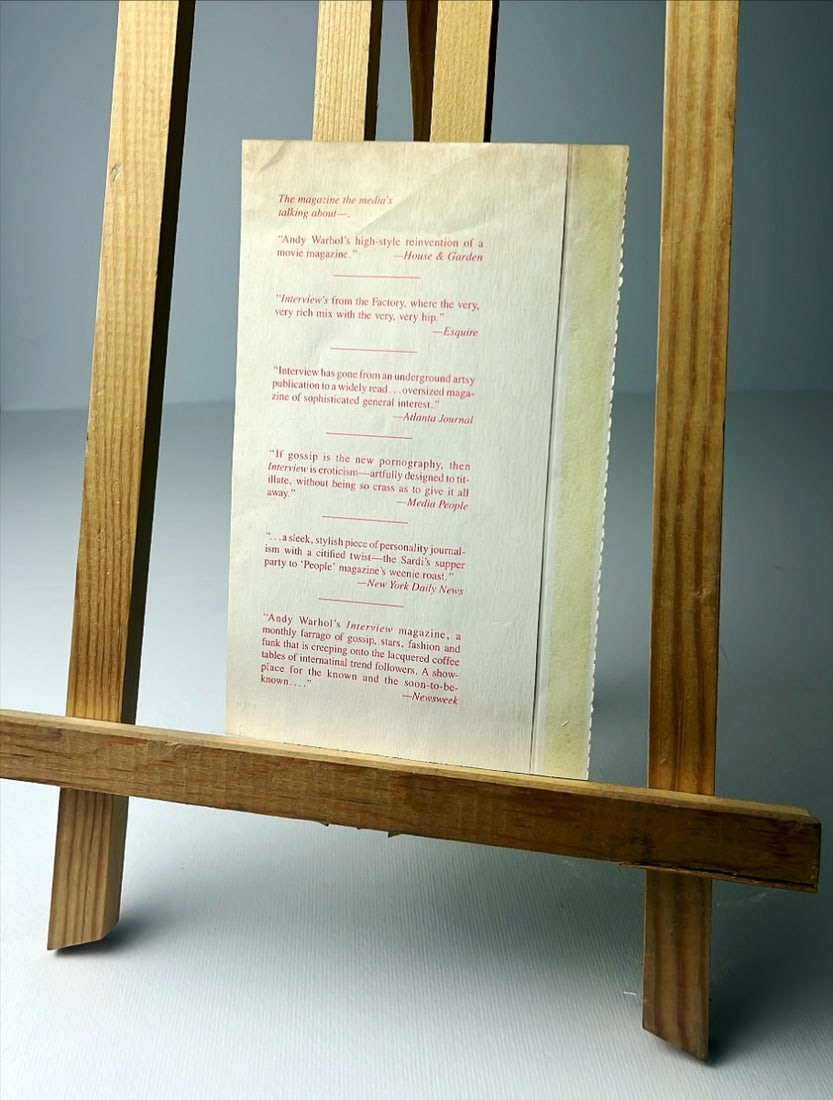 The magazine the media's
talking about—.
"Andy Warhol's high-style reinvention of a
movie magazine." —House & Garden
"Interview's from the Factory, where the very,
very rich mix with the very, very hip."
—Esquire
"Interview has gone from an underground artsy
publication to a widely read . . . oversized maga-
zine of sophisticated general interest."
—Atlanta Journal
"If gossip is the new pornography, then
Interview is eroticism—artfully designed to tit-
illate, without being so crass as to give it all
away."
—Media People
". . . a sleek, stylish piece of personality journal-
ism with a citified twist—the Sardi's supper
party to 'People' magazine's weenie roast."
—New York Daily News
"Andy Warhol's Interview magazine, a
monthly farrago of gossip, stars, fashion and
funk that is creeping onto the lacquered coffee
tables of internatinal trend followers. A show-
place for the known and the soon-to-be-
known. . . ."
—Newsweek